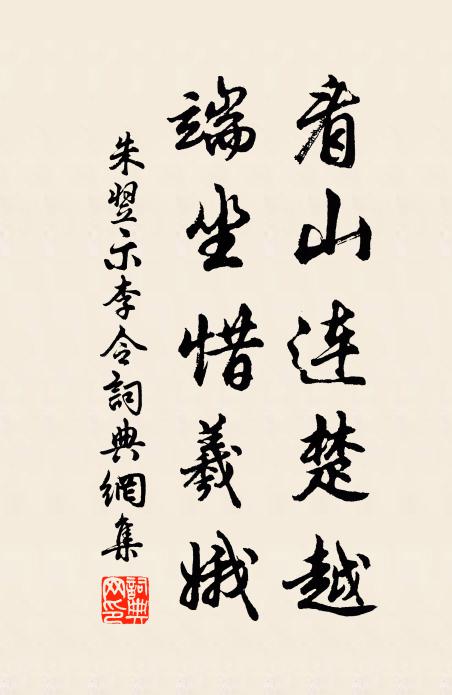 看山连楚越
端坐惜羲娥
朱翌示李令詞典網集
詞典网印